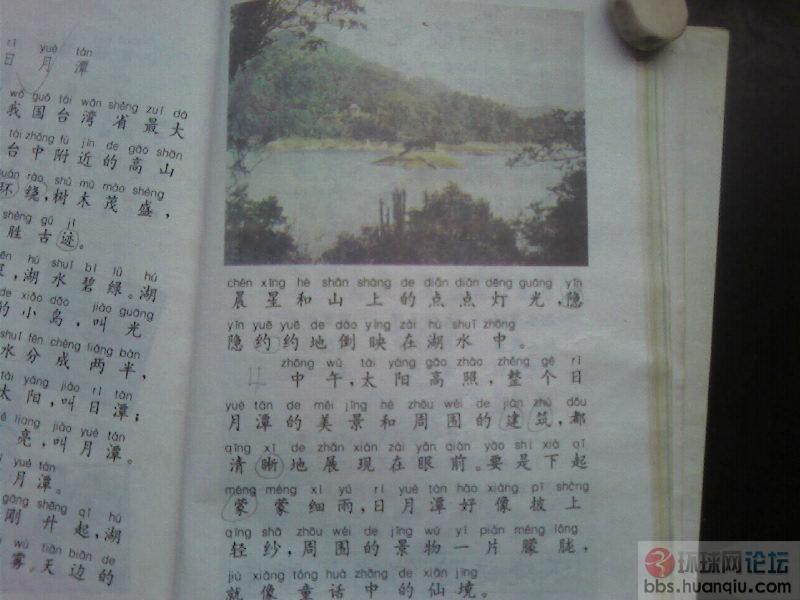 rì yuè tán
日月潭
wǒ guó tái wān shěng zuì dà
我国台湾省最大
tái zhōng fù jìn de gāo shān
台中附近的高山
huán rào, shù mù mào shèng
环绕,树木茂盛,
shèng gǔ jì
胜古迹。
hú shuǐ bì lǜ hú
湖水碧绿。湖
de xiǎo dǎo jiào guāng
的小岛,叫光
shuǐ fēn chéng liǎng bàn
水分成两半,
tài yáng jiào rì tán
太阳,叫日潭;
liang jiào yuè tán
亮,叫月潭。
yuè tán
月潭。
gāng shēng qǐ hú
刚升起,湖
wù tiān biān de
雾。天边的
chén xīng hé shān shàng de diǎn diǎn dēng guāng yǐn
晨星和山上的点点灯光,隐
yǐn yuē yuē de dào yìng zài hú shuǐ zhōng
隐约约地倒映在湖水中。
4
zhōng wǔ tài yáng gāo zhào zhěng gè rì
中午,太阳高照,整个日
yuè tán de měi jǐng hé zhōu wéi de jiàn zhù dōu
月潭的美景和周围的建筑,都
qīng xī de zhǎn xiàn zài yǎn qián yào shi xià qǐ
清晰地展现在眼前。要是下起
méng méng xì yǔ rì yuè tán hǎo xiàng pī shàng
蒙蒙细雨,日月潭好像披上
qīng shā zhōu wéi de jǐng wù yí piàn méng lóng
轻纱,周围的景物一片朦胧,
jiù xiàng tóng huà zhōng de xiān jìng
就像童话中的仙境。
环球网论坛
bbs.huanqiu.com